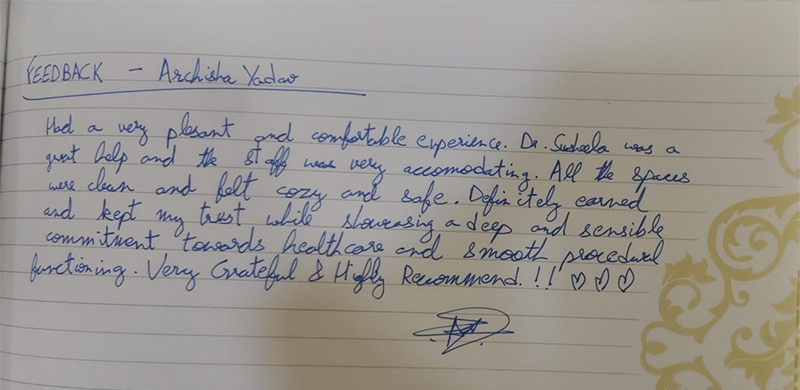 FEEDBACK - Archisha Yadav
Had a very plesant and comfortable experience. Dr. Susheela was a
great help and the staff was very accomodating. All the spaces
were clean and felt cozy and safe. Definitely earned
and kept my trust while showcasing a deep and sensible
commitment towards healthcare and smooth procedural
functioning. Very Grateful & Highly Recommend. !! ♡♡♡